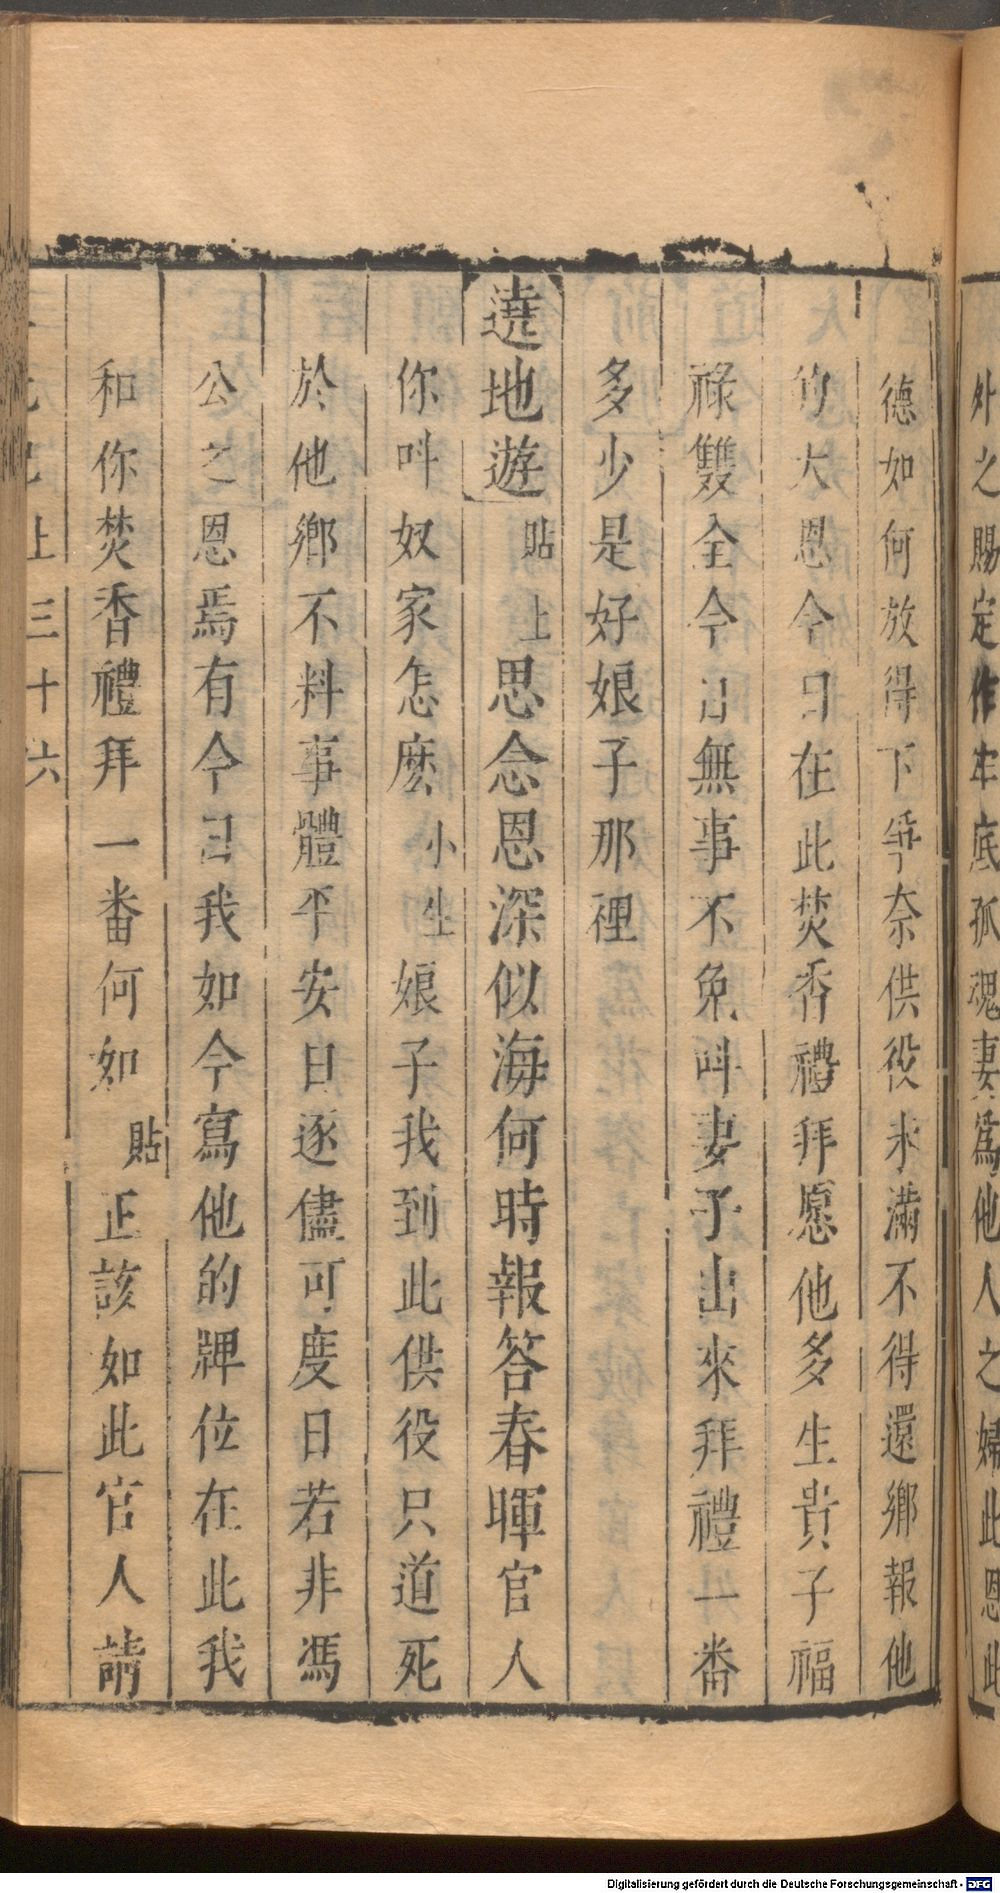 外之賜定作牢底孤魂妻爲他人之婦此恩此
德如何放得下爭奈供役未滿不得還鄉報他
的大恩今日在此焚香禮拜愿他多生貴子福
祿雙全今日無事不免叫妻子出來拜禮一畨
多少是好娘子那裡
遶地遊 貼上 思念恩深似海何時報答春暉官人
你叫奴家怎麽 小生 娘子我到此供役只道死
於他鄉不料事體平安日逐儘可度日若非馮
公之恩焉有今日我如今寫他的牌位在此我
和你焚香禮拜一畨何如 貼 正該如此官人請
三元記上三十六
Digitalisierung gefördert durch die Deutsche Forschungsgemeinschaft - DFG